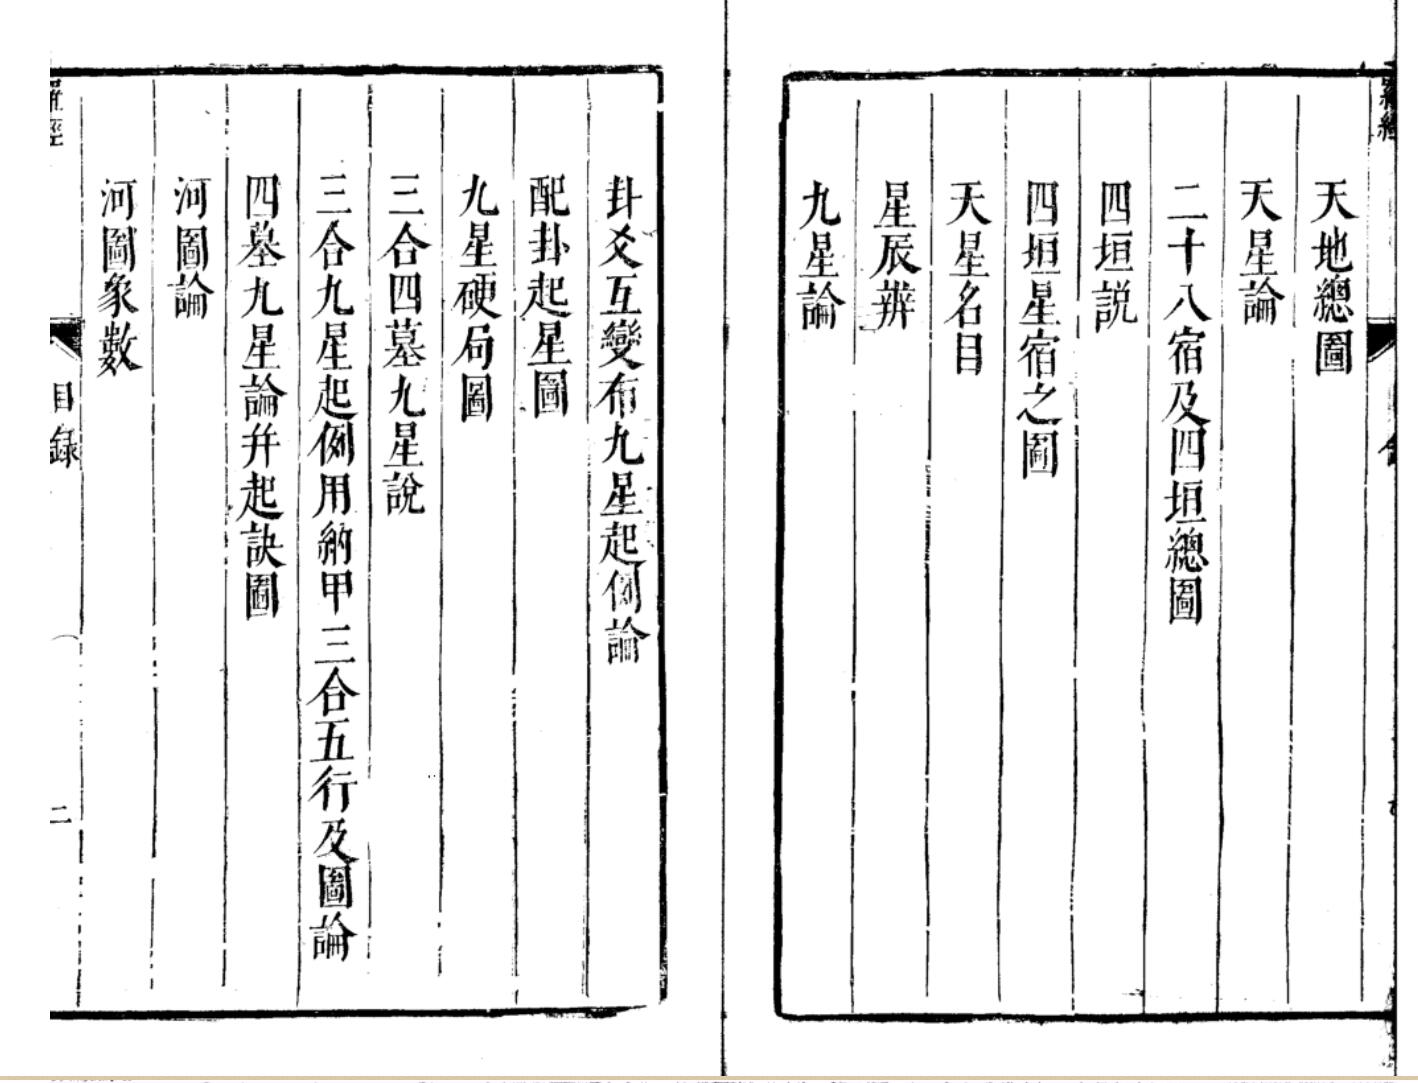 天地總圖
天星論
二十八宿及四垣總圖
四垣説
四垣星宿之圖
天星名目
星辰辨
九星論
卦爻互變布九星起例論
配卦起星圖
九星硬局圖
三合四墓九星說
三合九星起例用納甲三合五行及圖論
四墓九星論并起訣圖
河圖論
河圖象數
羅經
目録
二